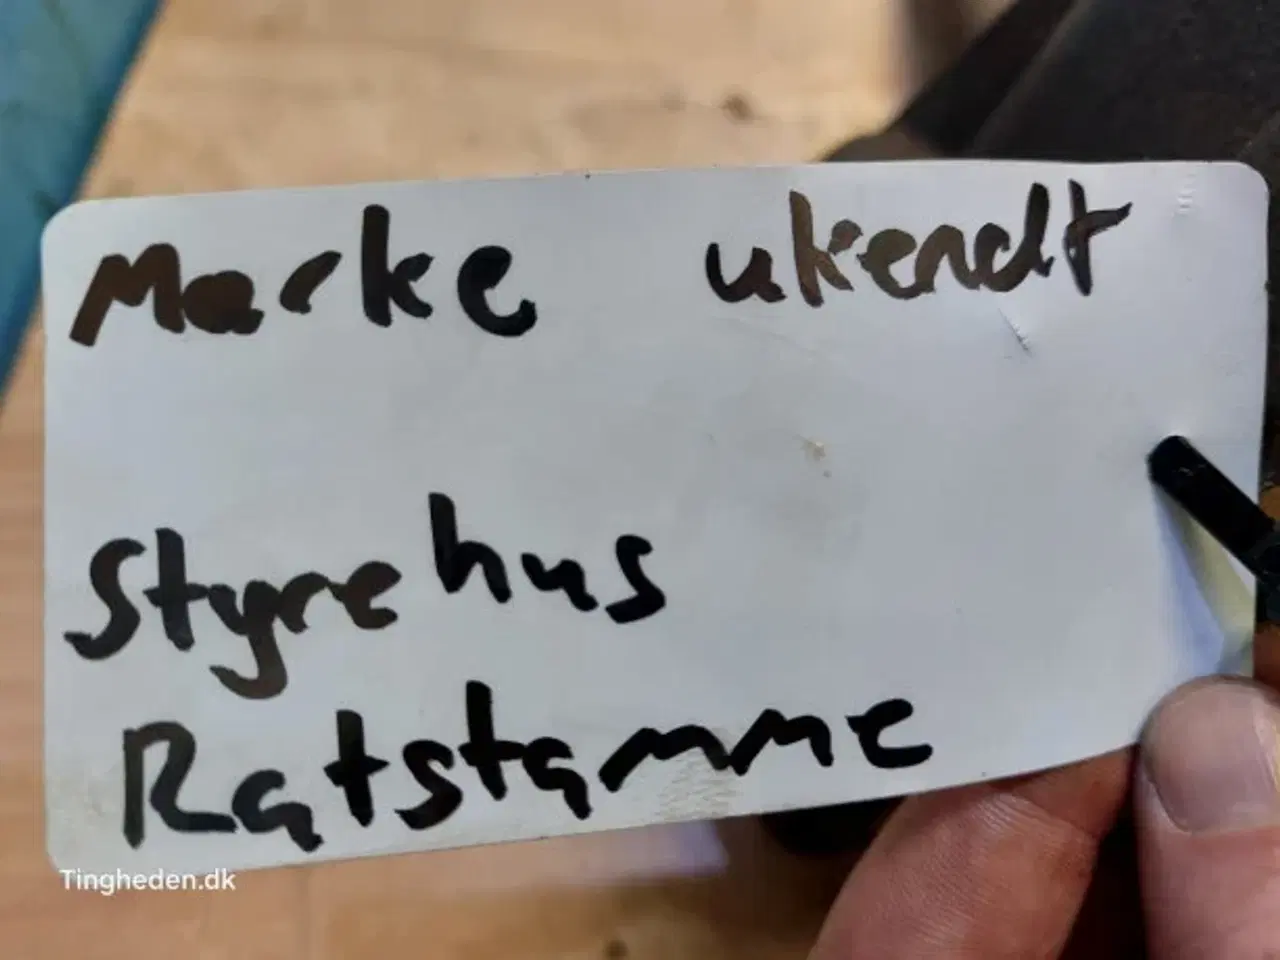 Marke ukendt
Styrehus
Ratstamme
Tingheden.dk